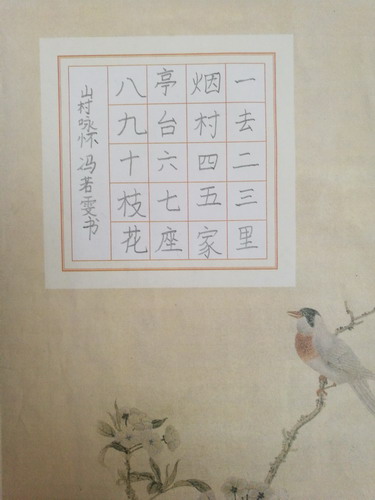 一去二三里
烟村四五家
亭台六七座
八九十枝花
山村咏怀 冯若雯书